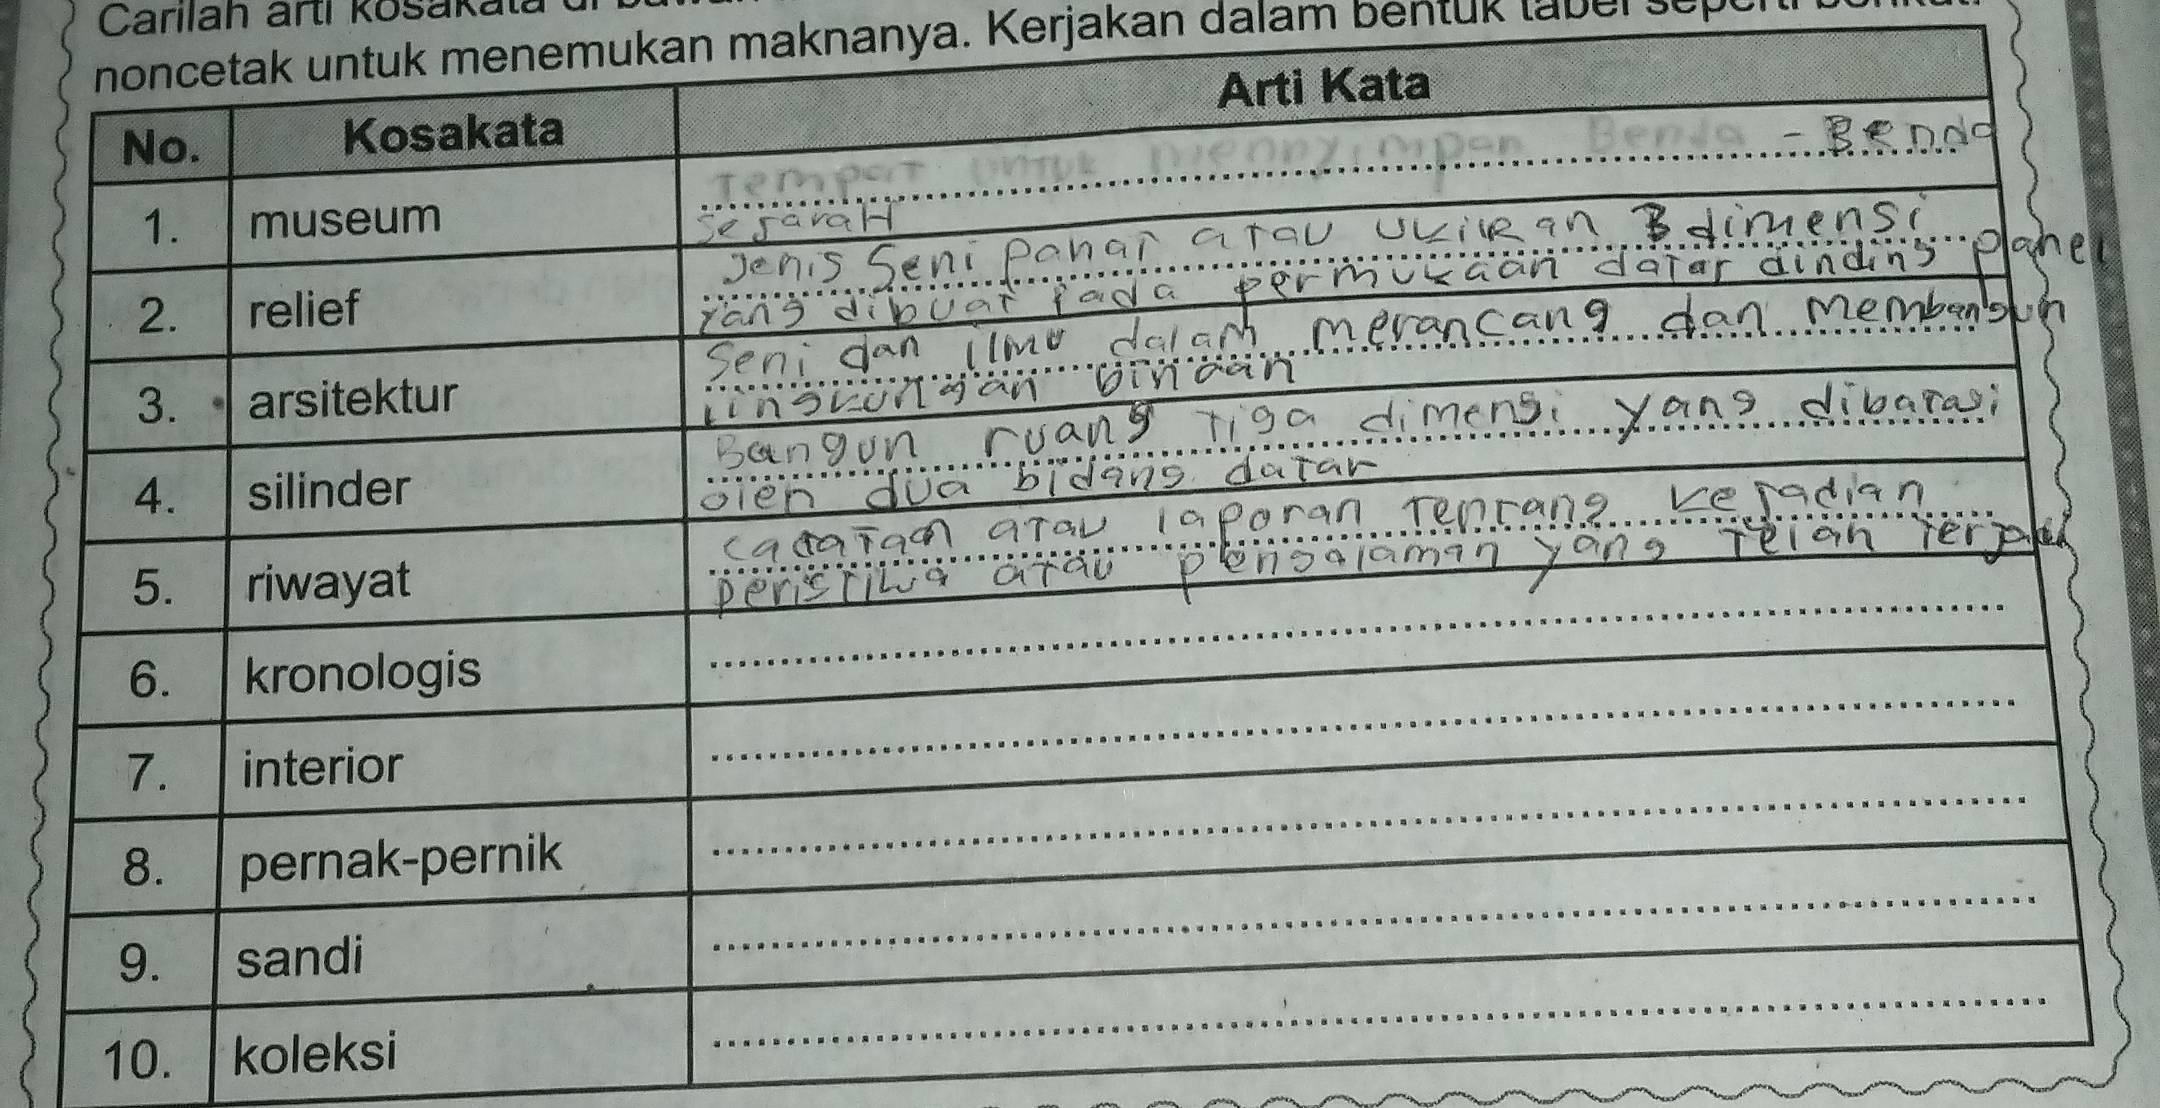 Carilah arti kosakata
noncetak untuk menemukan maknanya. Kerjakan dalam bentuk tabel seperti
No. Kosakata Arti Kata
1. museum Tempat untuk menyimpan Benda - Benda
sejaraH
2. relief Jenis Seni pahat atau ukiran 3 dimensi
yang dibuat pada permukaan datar dinding panel
3. arsitektur Seni dan ilmu dalam merancang dan membangun
lingkungan binaan
4. silinder Bangun ruang tiga dimensi yang dibatasi
oleh dua bidang datar
5. riwayat catatan atau laporan tentang kejadian
peristiwa atau pengalaman yang telah
6. kronologis
7. interior
8. pernak-pernik
9. sandi
10. koleksi